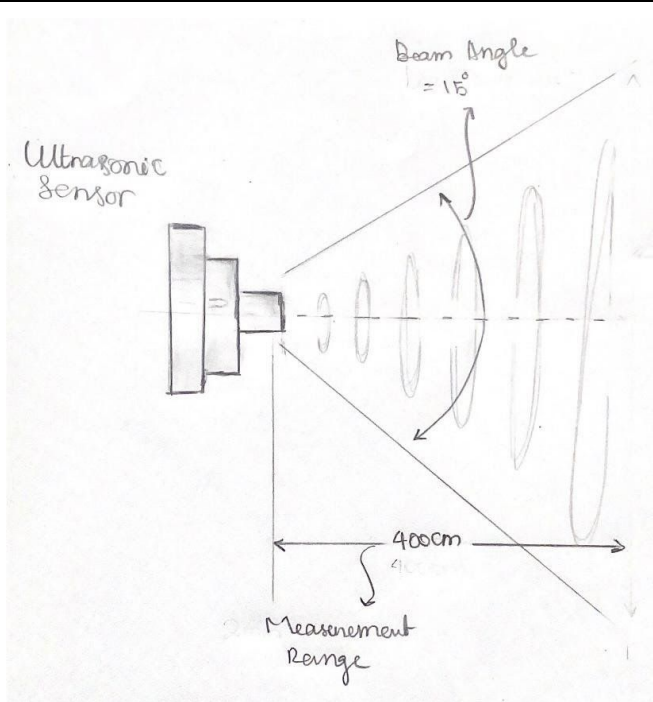 Beam Angle
= 15°
Ultrasonic
Sensor
400cm
Measurement
Range